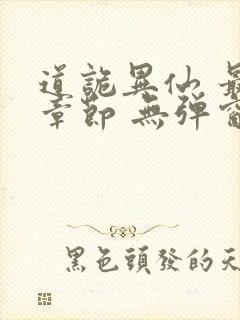 道詭異仙 最
章節 無彈窗
黑色頭發的天